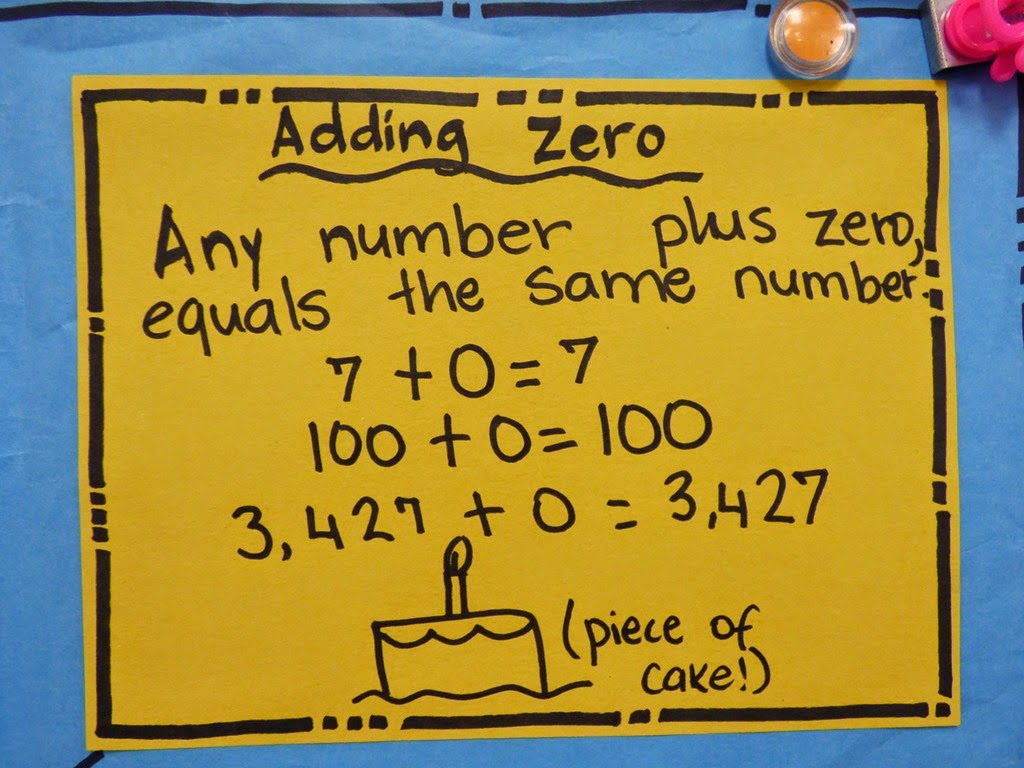 Adding Zero
Any number plus zero,
equals the same number.
7 + 0 = 7
100 + 0 = 100
3,427 + 0 = 3,427
(piece of
cake!)